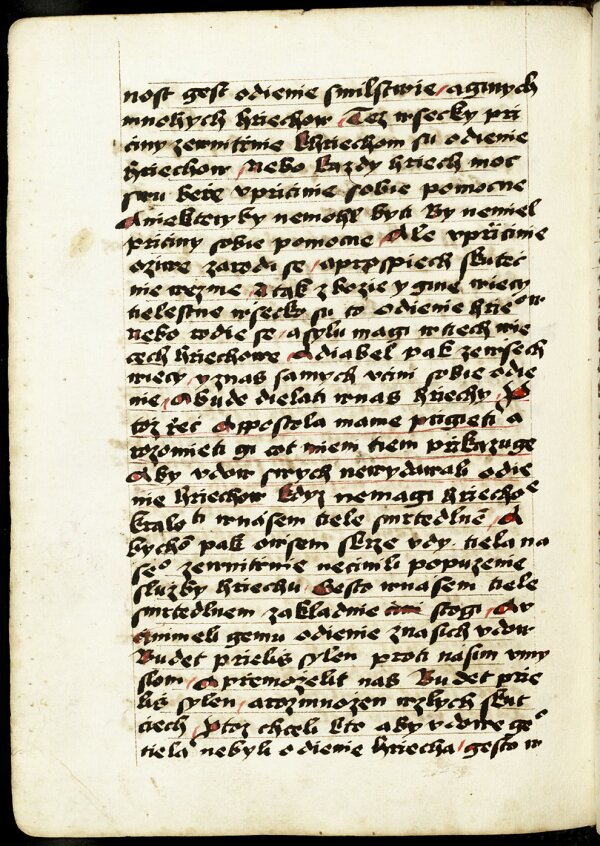 nost gest odienie smilstwie / a ginych
mnohych hriechow / Tez wsecky pri
ciny zewnitrnie k hriechom su odienie
hriechow / Nebo kazdy hriech moc
swu beře v pricinie sobie pomocne
A niektery by nemohl byti By nemiel
priciny sobie pomocne A le v přicinie
oziwe zarodi se / a prospiech skutec
nie wezme A tak z bozie y gine wiecy
tielestne wsecky su to odienie hrieow
nebo rodie se / a sylu magi w tiech wie
cech hriechowe / A diabel pak ze wsech
wiecy / y z nas samych vcini sobie odie
nie / A bude dielati w nas hriechy / P
toz řec A postola mame prigieti a
rozomieti gi cot miem tiem přikazuge
A by vdow swych newydawali odie
nie hriechow kdyz nemagi hriechoe
kralo ti w nasem tiele smrtedlnē / A
bychō pak owsem skrze vdy tiela na
seo zewnitrnie necinili popuzenie
sluzby hriechu Gesto w nasem tiele
smrtedlnem zakladnie stogi / A w
ammeli gemu odienie z nasich vdow
Budet prielis sylen proti nasim vmy
slom / A přemozelit nas Budet prie
lis sylen / a rozmnozen w zlych skut
ciech / Ptoz chceli kto aby vdowe geo
tiela nebyli odienie hriecha / gesto w